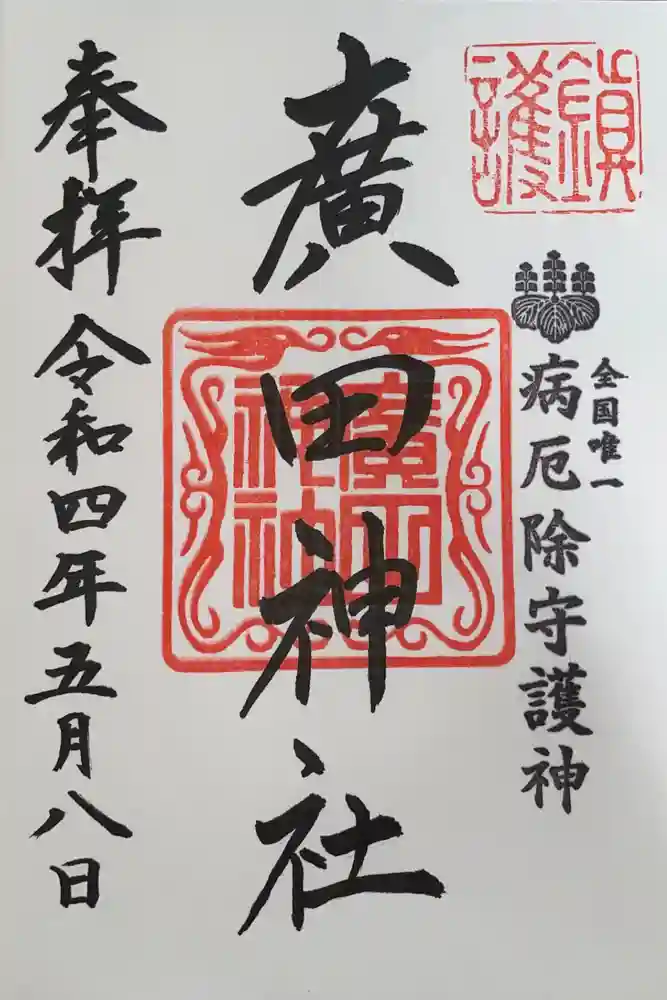 鎮護
全国唯一
病厄除守護神
廣田神社
廣田神社
奉拝
令和四年五月八日